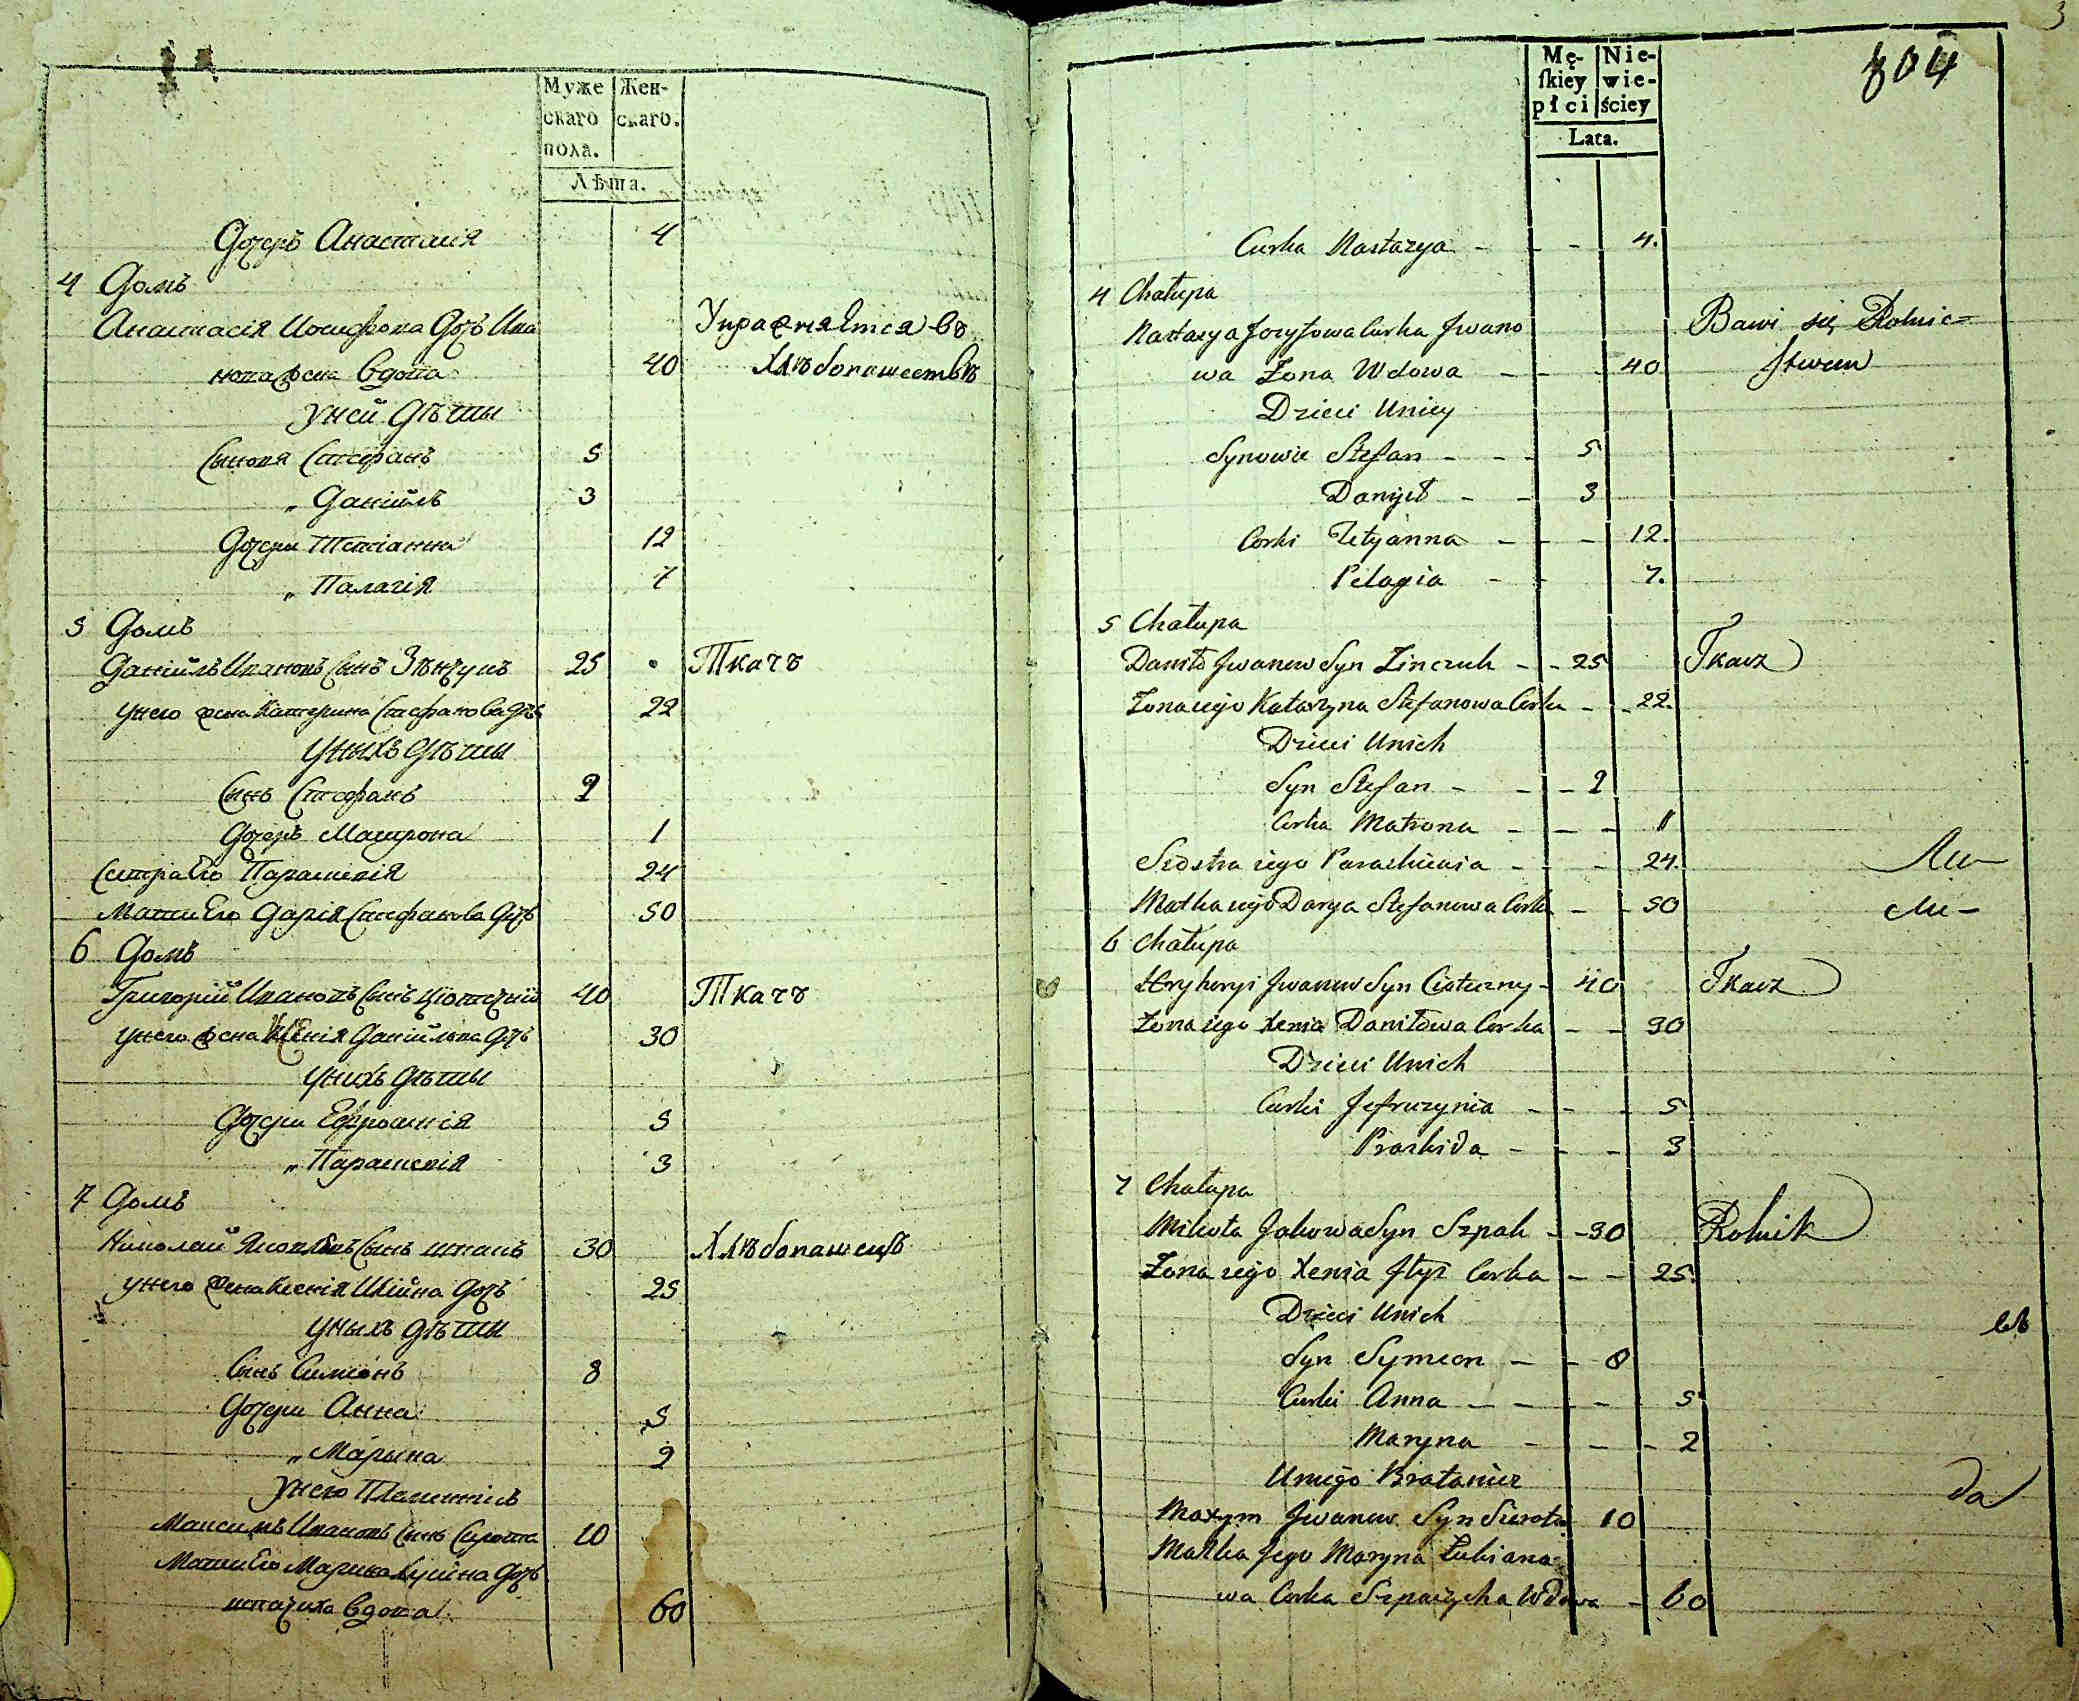 Муже
скаго
пола.
Жен-
скаго.
Лѣта.
Дочеръ Анастасія 4
4 Домъ
Анастасія Иосифова Дочь Ива Упражняется въ
нова жена вдова 40 Хлѣбопашествѣ
У ней Дѣти
Сыновя Стефанъ 5
„ Даніилъ 3
Дочери Тетіанна 12
„ Палагія 7
5 Домъ
Даніилъ Ивановъ Сынъ Зѣнчукъ 25 Ткачъ
У него жена Катерина Стефанова Дочь 22
У ныхъ Дѣти
Сынъ Стефанъ 2
Дочеръ Матрона 1
Сестра Его Параскевія 24
Мати Его Дарія Стефанова Дочь 50
6 Домъ
Григорій Ивановъ Сынъ Цютечній 40 Ткачъ
У него жена Ксенія Даніилова Дочь 30
У нихъ Дѣти
Дочери Ефросинія 5
„ Параскевія 3
7 Домъ
Николай Яковлевъ Сынъ Шпакъ 30 Хлѣбопашецъ
У него жена Ксенія Илійна Дочь 25
У ныхъ Дѣти
Сынъ Симеонъ 8
Дочери Анна 5
„ Марына 2
У него Племенникъ
Максимъ Ивановъ Сынъ Сирота 10
Мати Его Марина Дочь
Шпачиха вдова 60
3
804
Mę-
ſkiey
płci
Nie-
wie-
ściey
Lata.
Curka Nastazya - - - 4.
4 Chałupa
Nastazya Jozyfowa Curka Jwano Bawi się Rolnic=
wa Żona Wdowa - - - 40 ſtwem
Dzieci Uniey
Synowie Stefan - - - 5
Daniył - - 3
Corki Tetyanna - - - 12.
Pelagia - - 7.
5 Chałupa
Daniło Jwanow Syn Zinczuk - - 25 Tkacz
Żona iego Katarzyna Stefanowa Corka - - 22.
Dzieci Unich
Syn Stefan - - - 2
Curka Matrona - - - 1
Siostra iego Paraskiewia - - - 24.
Matka iego Darya Stefanowa Corka - - 50
6 Chałupa
Hryhoryi Jwanow Syn Ciuteczny - 40 Tkacz
Żona iego Xenia Daniłowa Corka - - 30
Dzieci Unich
Curki Jefruzynia - - - 5
Praskida - - - 3
7 Chałupa
Mikoła Jakowa Syn Szpak - - 30 Rolnik
Żona iego Xenia Corka - - 25.
Dzieci Unich
Syn Symeon - - 8
Curki Anna - - - - 5
Maryna - - - 2
Uniego Bratanicz
Maxym Jwanow Syn Sierota 10
Matka Jego Maryna Łukiano
wa Corka Szpaczycha Wdowa - 60